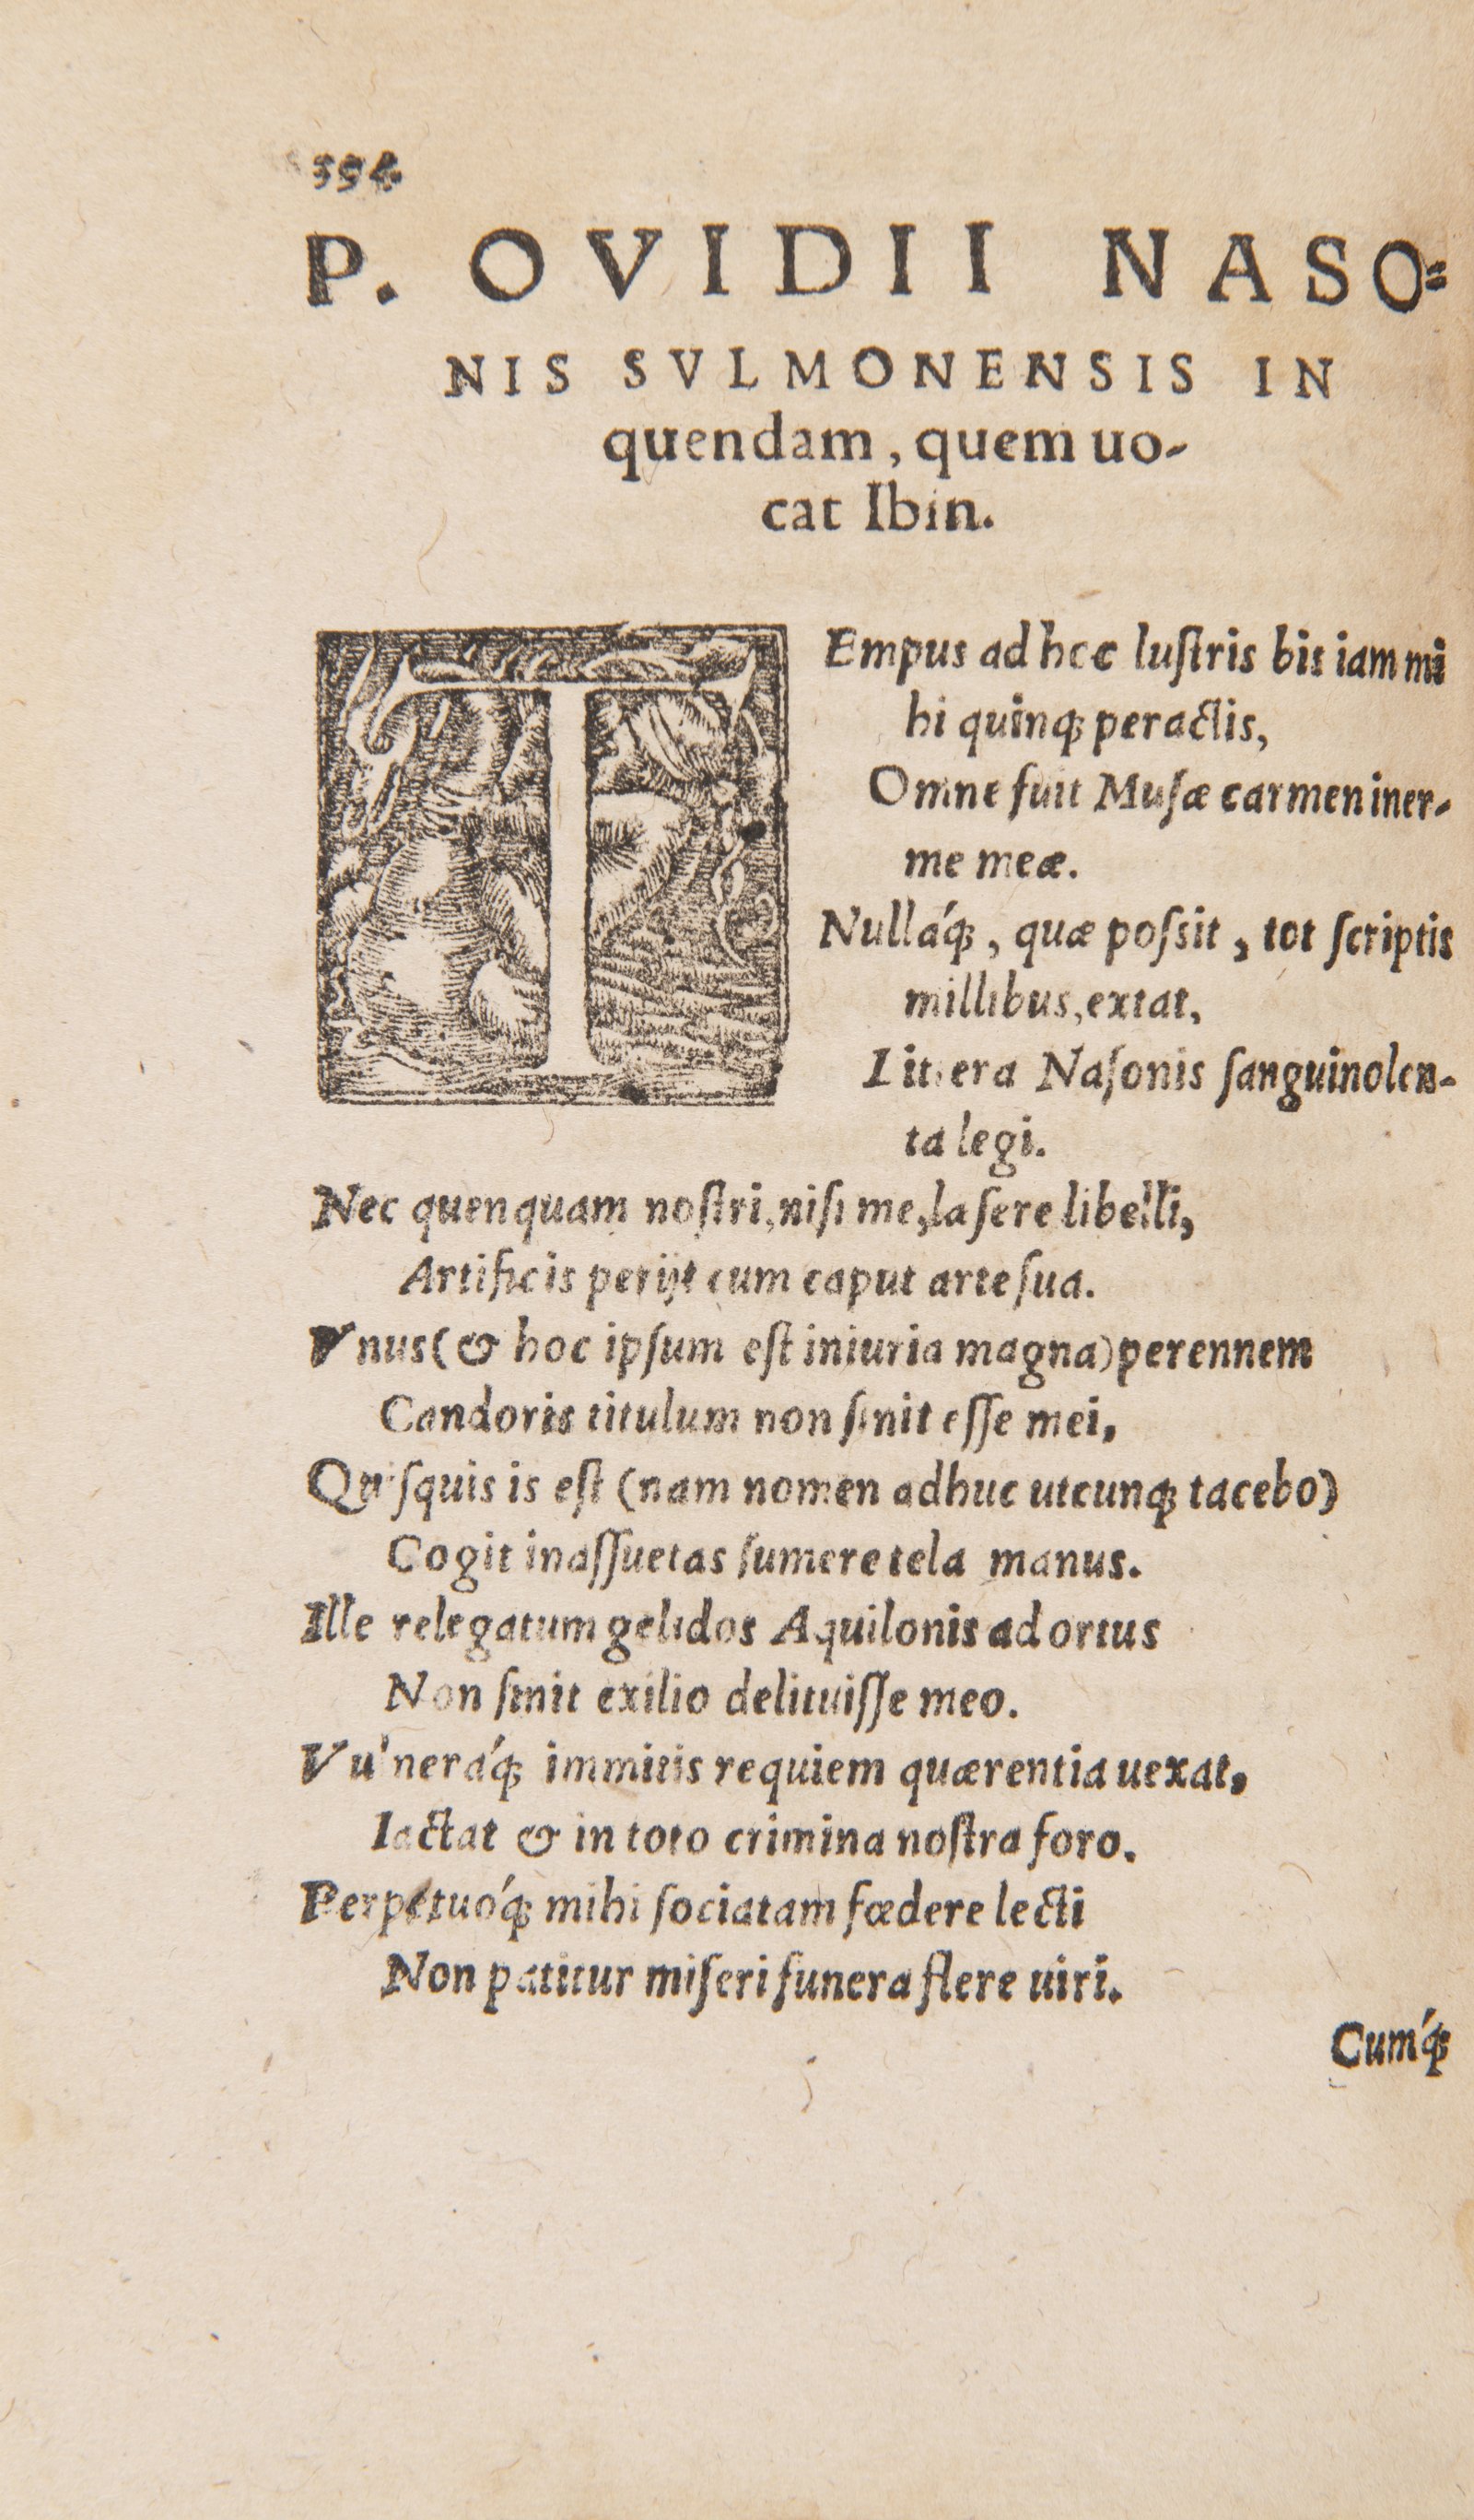 394
P. OVIDII NASO=
NIS SVLMONENSIS IN
quendam, quem uo-
cat Ibin.
TEmpus ad hec luſtris bis iam mi
hi quinq; peractis,
Omne fuit Muſæ carmen iner-
me meæ.
Nulláq;, quæ poſsit, tot ſcriptis
millibus, extat,
Littera Naſonis ſanguinolen-
ta legi.
Nec quenquam noſtri, niſi me, læſere libelli,
Artificis perijt cum caput arte ſua.
Vnus (& hoc ipſum eſt iniuria magna) perennem
Candoris titulum non ſinit eſſe mei,
Quiſquis is eſt (nam nomen adhuc utcunq; tacebo)
Cogit inaſſuetas ſumere tela manus.
Ille relegatum gelidos Aquilonis ad ortus
Non ſinit exilio delituiſſe meo.
Vulneráq; immitis requiem quærentia uexat,
Iactat & in toto crimina noſtra foro.
Perpetuóq; mihi ſociatam fœdere lecti
Non patitur miſeri funera flere uiri.
Cumq́;